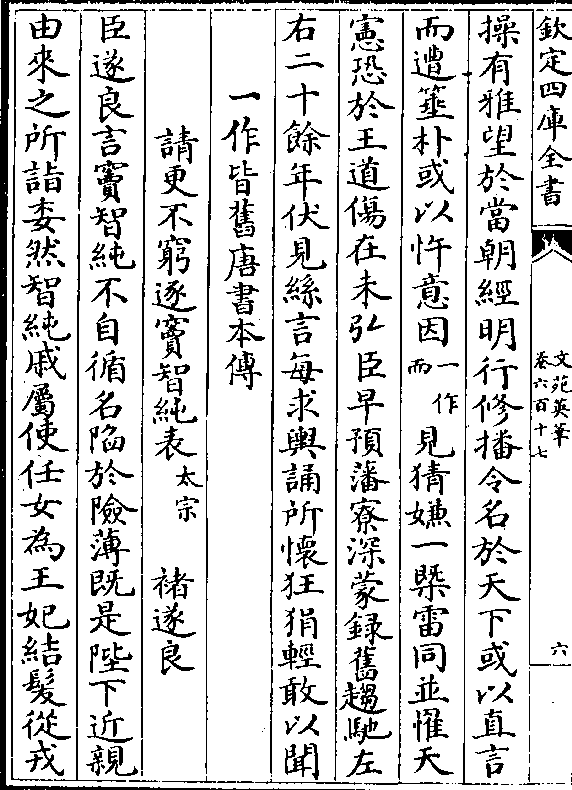 欽定四庫全書
文苑英華
卷六百十七
六
操有雅望於當朝經明行修播令名於天下或以直言
而遭箠朴或以忤意因一作而見猜嫌一槩雷同並懼天
憲恐於王道傷在未弘臣早預藩寮深蒙録舊趨馳左
右二十餘年伏見絲言每求輿誦所懷狂狷輕敢以聞
一作皆舊唐書本傳
請更不窮逐竇智純表太宗 褚遂良
臣遂良言竇智純不自循名陷於險薄既是陛下近親
由來之所詣委然智純戚屬使任女為王妃結髮從戎